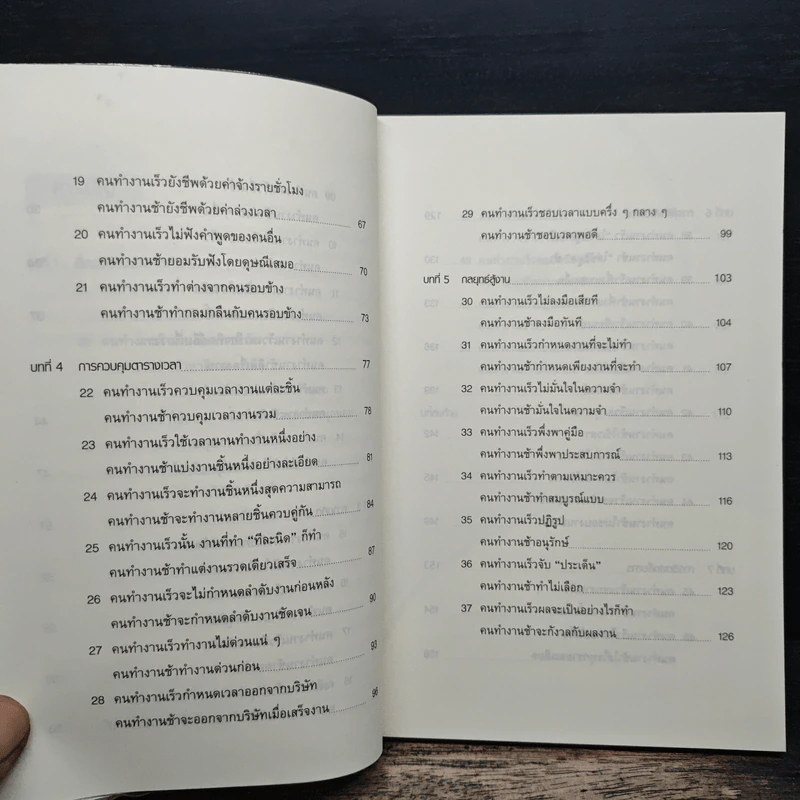 19 คนทำงานเร็วยังชีพด้วยค่าจ้างรายชั่วโมง
คนทำงานช้ายังชีพด้วยค่าล่วงเวลา 67
20 คนทำงานเร็วไม่ฟังคำพูดของคนอื่น
คนทำงานช้ายอมรับฟังโดยดุษณีเสมอ 70
21 คนทำงานเร็วทำต่างจากคนรอบข้าง
คนทำงานช้าทำกลมกลืนกับคนรอบข้าง 73
บทที่ 4 การควบคุมตารางเวลา 77
22 คนทำงานเร็วควบคุมเวลางานแต่ละชิ้น
คนทำงานช้าควบคุมเวลางานรวม 78
23 คนทำงานเร็วใช้เวลานานทำงานหนึ่งอย่าง
คนทำงานช้าแบ่งงานชิ้นหนึ่งอย่างละเอียด 81
24 คนทำงานเร็วจะทำงานชิ้นหนึ่งสุดความสามารถ
คนทำงานช้าจะทำงานหลายชิ้นควบคู่กัน 84
25 คนทำงานเร็วนั้น งานที่ทำ "ทีละนิด" ก็ทำ
คนทำงานช้าทำแต่งานรวดเดียวเสร็จ 87
26 คนทำงานเร็วจะไม่กำหนดลำดับงานก่อนหลัง
คนทำงานช้าจะกำหนดลำดับงานชัดเจน 90
27 คนทำงานเร็วทำงานไม่ด่วนแน่ ๆ
คนทำงานช้าทำงานด่วนก่อน 93
28 คนทำงานเร็วกำหนดเวลาออกจากบริษัท
คนทำงานช้าจะออกจากบริษัทเมื่อเสร็จงาน 96
29 คนทำงานเร็วชอบเวลาแบบครึ่ง ๆ กลาง ๆ
คนทำงานช้าชอบเวลาพอดี 99
บทที่ 5 กลยุทธ์สู้งาน 103
30 คนทำงานเร็วไม่ลงมือเสียที
คนทำงานช้าลงมือทันที 104
31 คนทำงานเร็วกำหนดงานที่จะไม่ทำ
คนทำงานช้ากำหนดเพียงงานที่จะทำ 107
32 คนทำงานเร็วไม่มั่นใจในความจำ
คนทำงานช้ามั่นใจในความจำ 110
33 คนทำงานเร็วพึ่งพาคู่มือ
คนทำงานช้าพึ่งพาประสบการณ์ 113
34 คนทำงานเร็วทำตามเหมาะควร
คนทำงานช้าทำสมบูรณ์แบบ 116
35 คนทำงานเร็วปฏิรูป
คนทำงานช้าอนุรักษ์ 120
36 คนทำงานเร็วจับ "ประเด็น"
คนทำงานช้าทำไม่เลือก 123
37 คนทำงานเร็วผลจะเป็นอย่างไรก็ทำ
คนทำงานช้าจะกังวลกับผลงาน 126